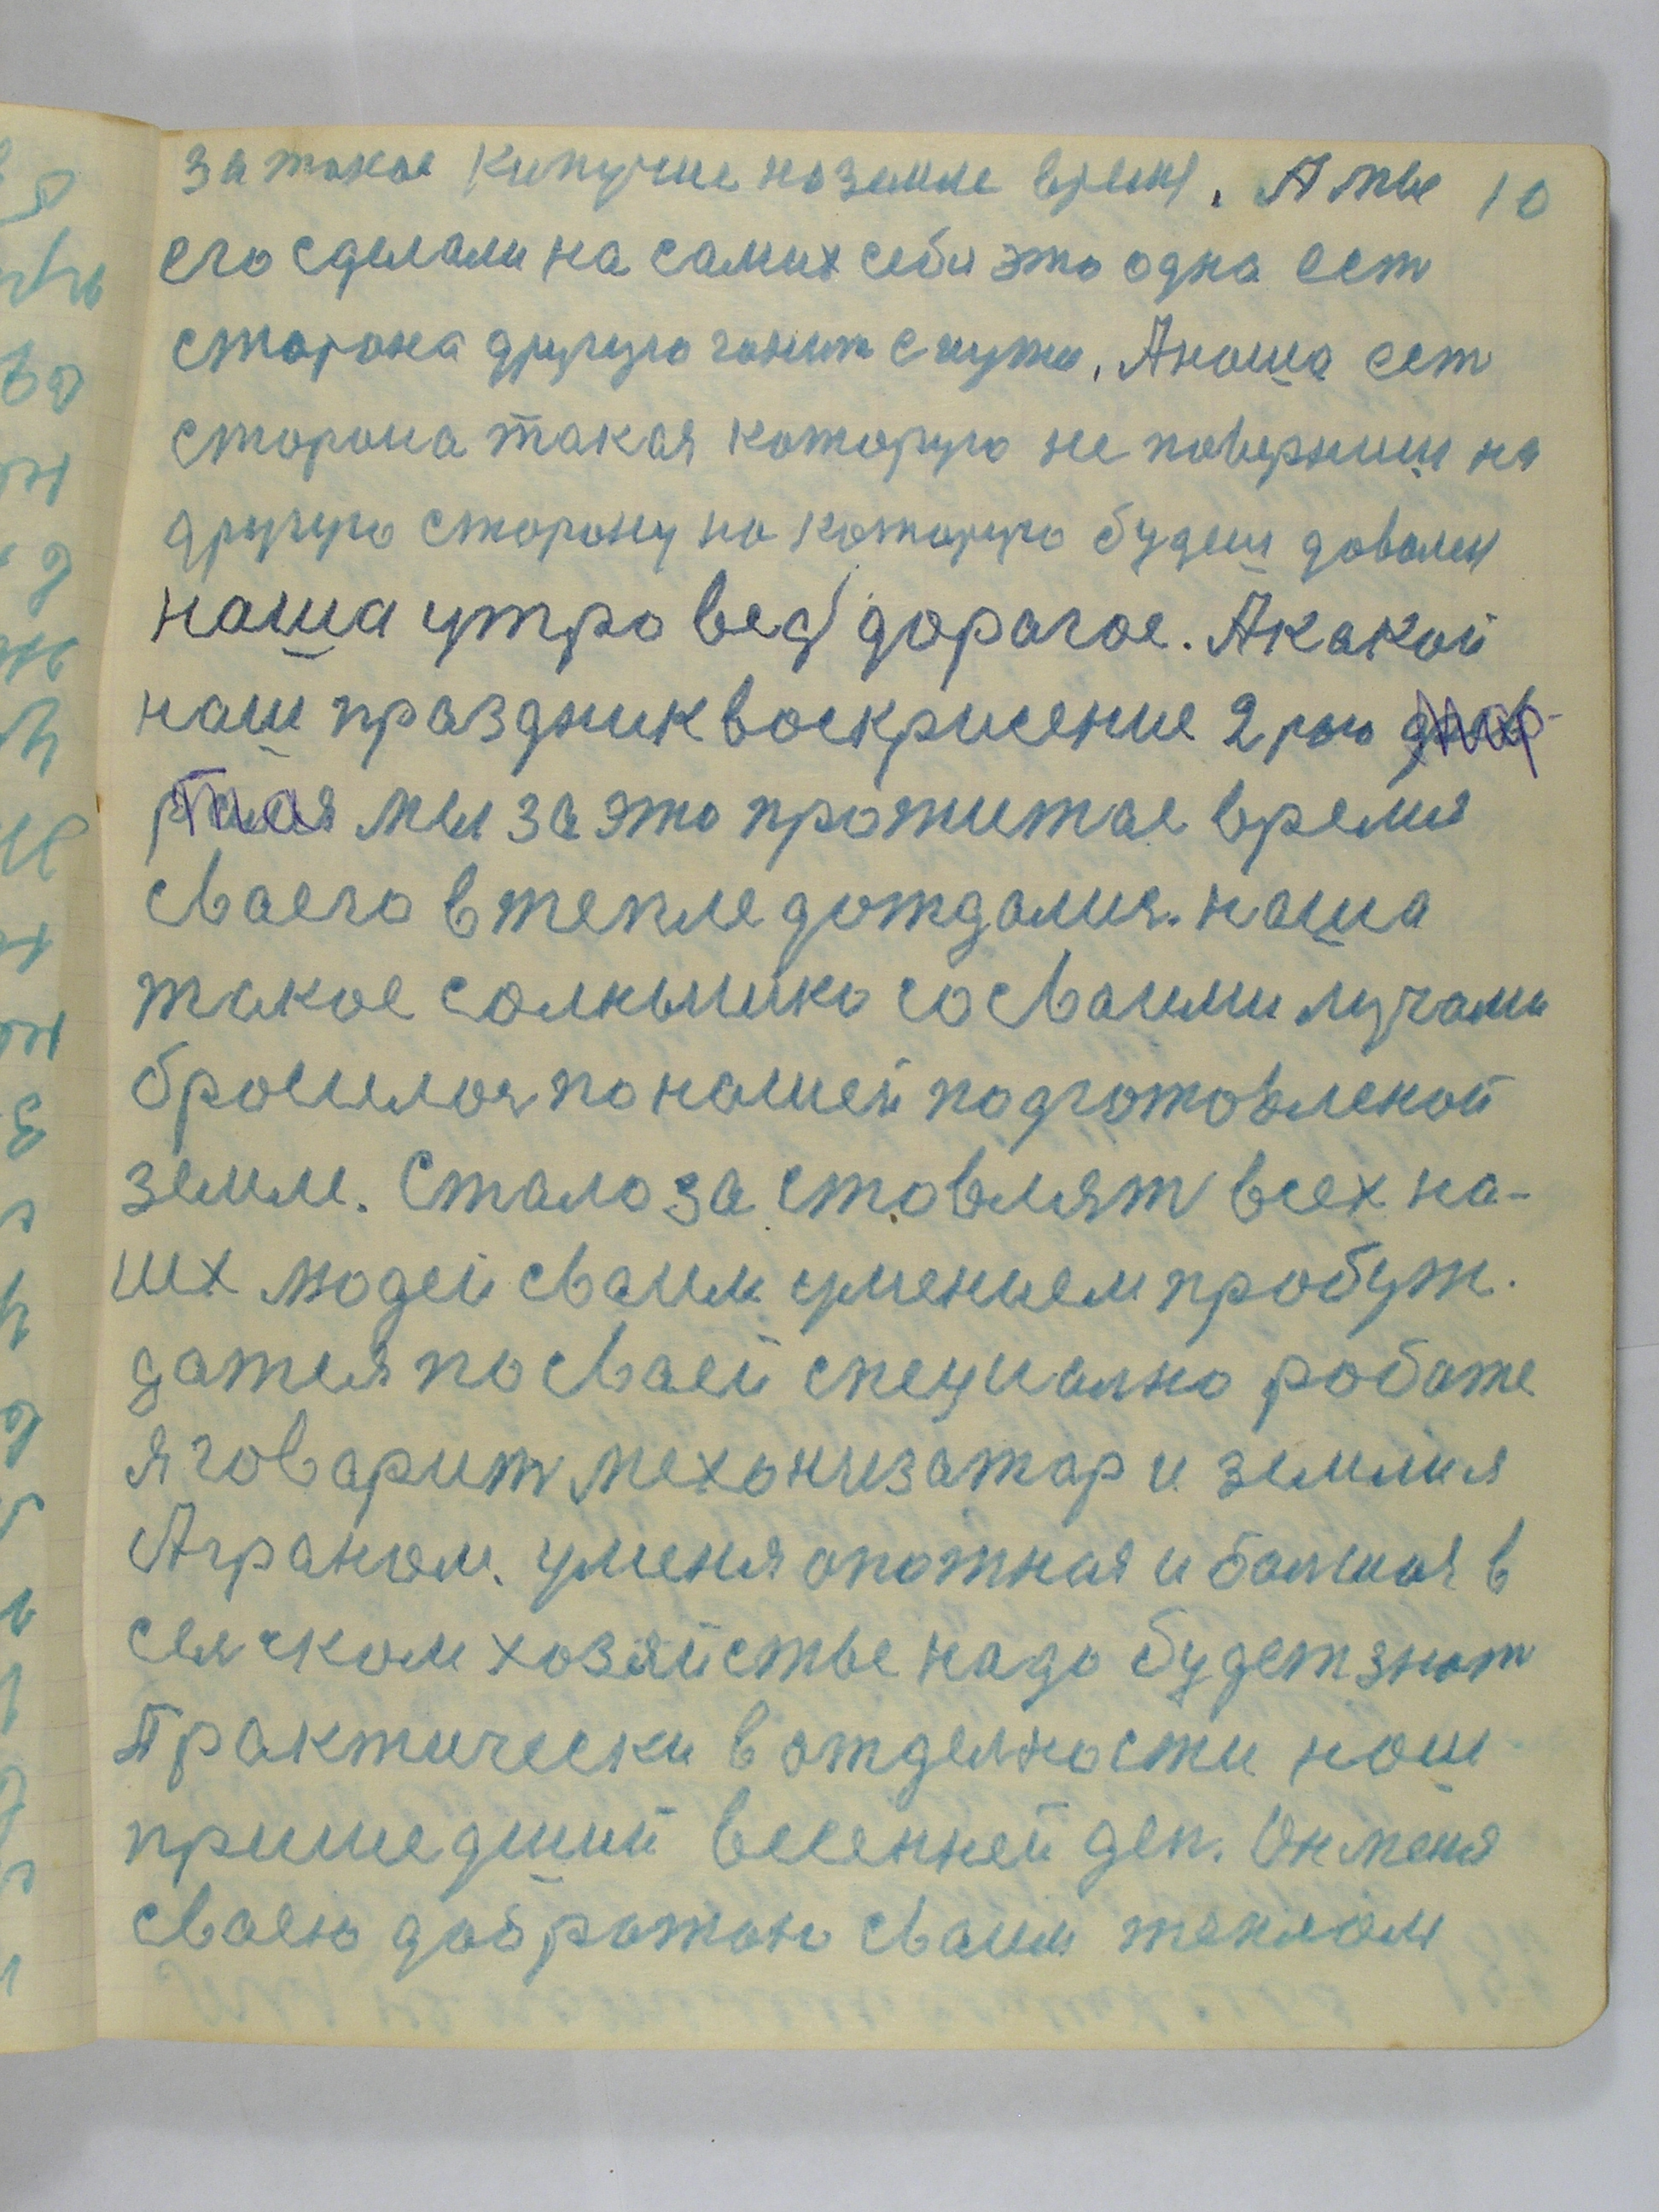 за такое кипучие на земле время. А мы 10
его сделали на самих себя это одна ест
сторона другую гонит с пути. А наша ест
сторона такая которую не поверниш на
другую сторону на которую будеш доволен
наша утро вед дорогое. А какой
наш праздник воскрисение 2 го мар-
та мы за это прожитае время
сваего в тепле дождалис. наша
такое солнышко со сваими лучами
бросилос по нашей подготовленой
земле. Стало заставлят всех на-
ших людей сваим умением пробуж.
датся по сваей специално работе
я говарит механизатар и земля
Аграном. у меня опотная и болшая в
селчком хозяйстве надо будет знат
Практически в отделности наш
пришедший весенней ден. Он меня
сваею добротою сваим теплом